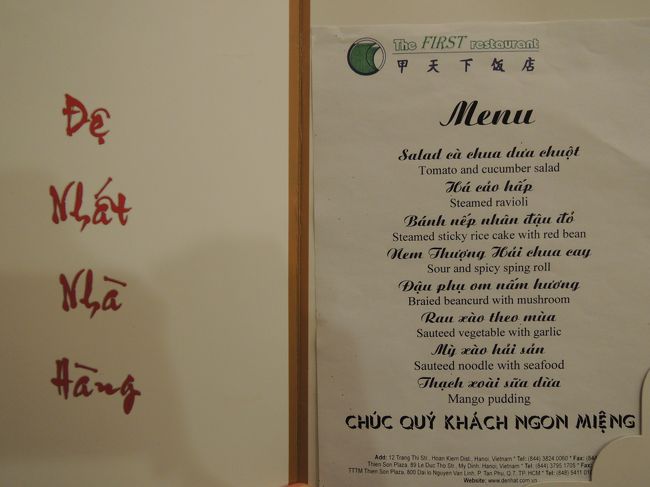 Đệ
Nhất
Nhà
Hàng
The FIRST restaurant
甲天下饭店
Menu
Salad cà chua dưa chuột
Tomato and cucumber salad
Há cảo hấp
Steamed ravioli
Bánh nếp nhân đậu đỏ
Steamed sticky rice cake with red bean
Nem Thượng Hải chua cay
Sour and spicy sping roll
Đậu phụ om nấm hương
Braied beancurd with mushroom
Rau xào theo mùa
Sauteed vegetable with garlic
Mỳ xào hải sản
Sauteed noodle with seafood
Thạch xoài sữa dừa
Mango pudding
CHÚC QUÝ KHÁCH NGON MIỆNG
Add: 12 Trang Thi Str., Hoan Kiem Dist., Hanoi, Vietnam * Tel: (844) 3824 0060 * Fax: (84
Thien Son Plaza, 89 Le Duc Tho Str., My Dinh, Hanoi, Vietnam * Tel: (844) 3795 1705 * Fax:
TTTM Thien Son Plaza, 800 Dai lo Nguyen Van Linh, P. Tan Phu, Q.7, TP. HCM * Tel: (848) 5411 01
Website: www.denhat.com.vn